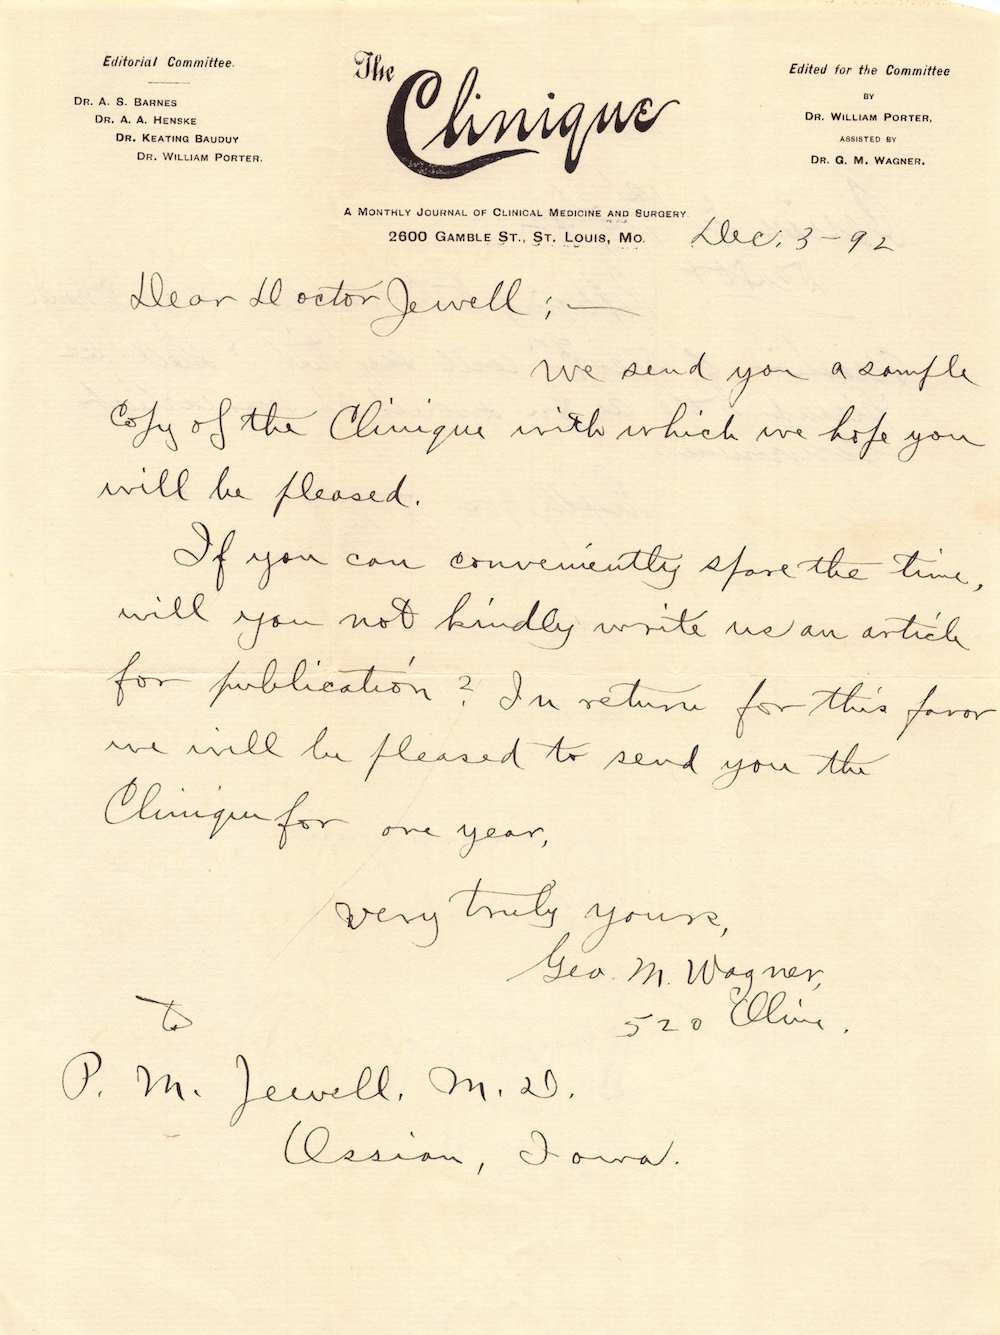 Editorial Committee.
DR. A. S. BARNES
DR. A. A. HENSKE
DR. KEATING BAUDUY
DR. WILLIAM PORTER.
The
Clinique
A MONTHLY JOURNAL OF CLINICAL MEDICINE AND SURGERY.
2600 GAMBLE ST., ST. LOUIS, MO.
Edited for the Committee
BY
DR. WILLIAM PORTER,
ASSISTED BY
DR. G. M. WAGNER.
Dec. 3-92
Dear Doctor Jewell;—
We send you a sample
copy of the Clinique with which we hope you
will be pleased.
If you can conveniently spare the time,
will you not kindly write us an article
for publication? In return for this favor
we will be pleased to send you the
Clinique for one year,
Very truly yours,
Geo. M. Wagner,
520 Olive.
to
P. M. Jewell, M. D.
Ossian, Iowa.